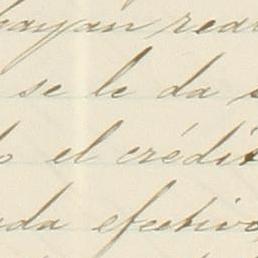 hayan rea
se le da s
o el crédit
da efectivo